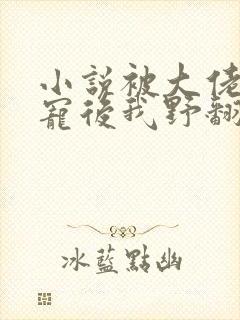 小說被大佬
寵後我野翻
冰藍點幽